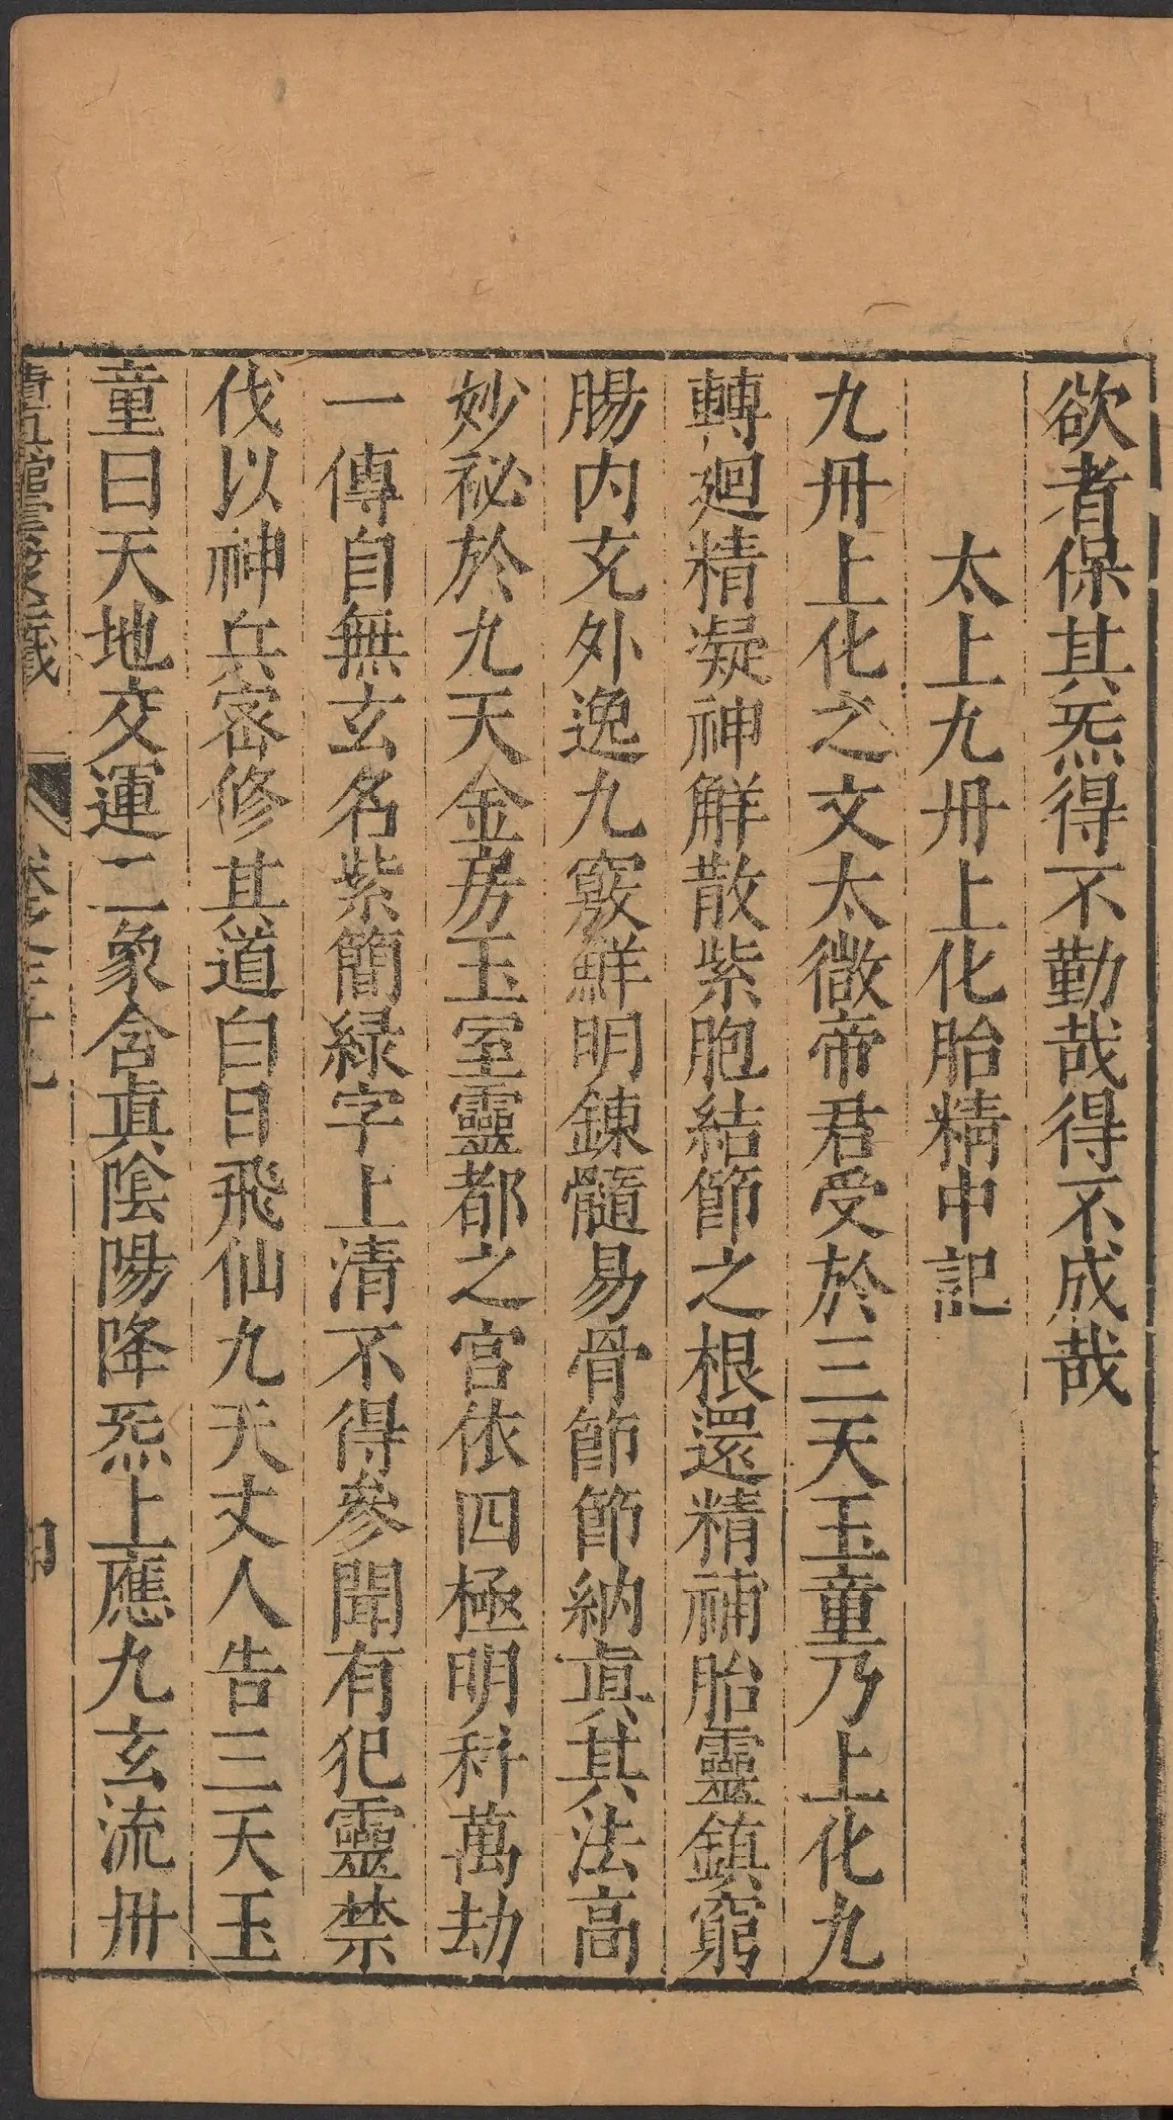 欲者保其炁得不勤哉得不成哉
太上九丹上化胎精中記
九丹上化之文太微帝君受於三天玉童乃上化九
轉廻精凝神解散紫胞結節之根還精補胎靈鎮窮
腸内充外逸九竅鮮明錬髓易骨節節納眞其法高
妙祕於九天金房玉室靈都之宫依四極明科萬劫
一傳自無玄名紫簡緑字上清不得參聞有犯靈禁
伐以神兵密修其道白日飛仙九天丈人告三天玉
童曰天地交運二象含眞陰陽降炁上應九玄流丹